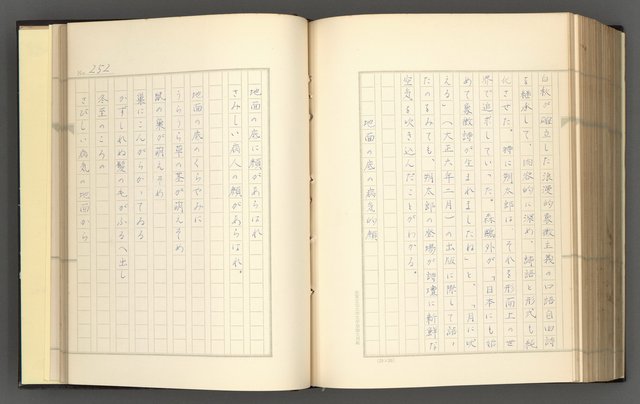 白秋が確立した浪漫的象徴主義の口語自由詩
を継承して、内容的に深め、詩語と形式も純
化させた。特に朔太郎は、それを形而上の世
界で追求していった。森鷗外が「日本にも始
めて象徴詩が生まれましたね」と、『月に吠
える』(大正六年二月)の出版に際して語っ
たのをみても、朔太郎の登場が詩壇に新鮮な
空気を吹き込んだことがわかる。
地面の底の病気の顔
No. 252
地面の底に顔があらはれ
さみしい病人の顔があらはれ。
地面の底のくらやみに
うらうら草の茎が萌えそめ
鼠の巣が萌えそめ
巣にこんがらかってゐる
かずしれぬ髪の毛がふるへ出し
冬至のころの
さびしい病気の地面から
(20×20)